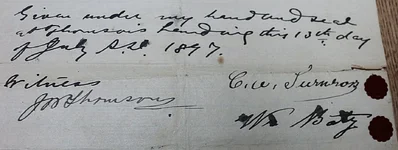 Given under my hand and seal
at Thomsons Landing this 13th day
of July A.D. 1897.
Witness
C.W.
W Baty